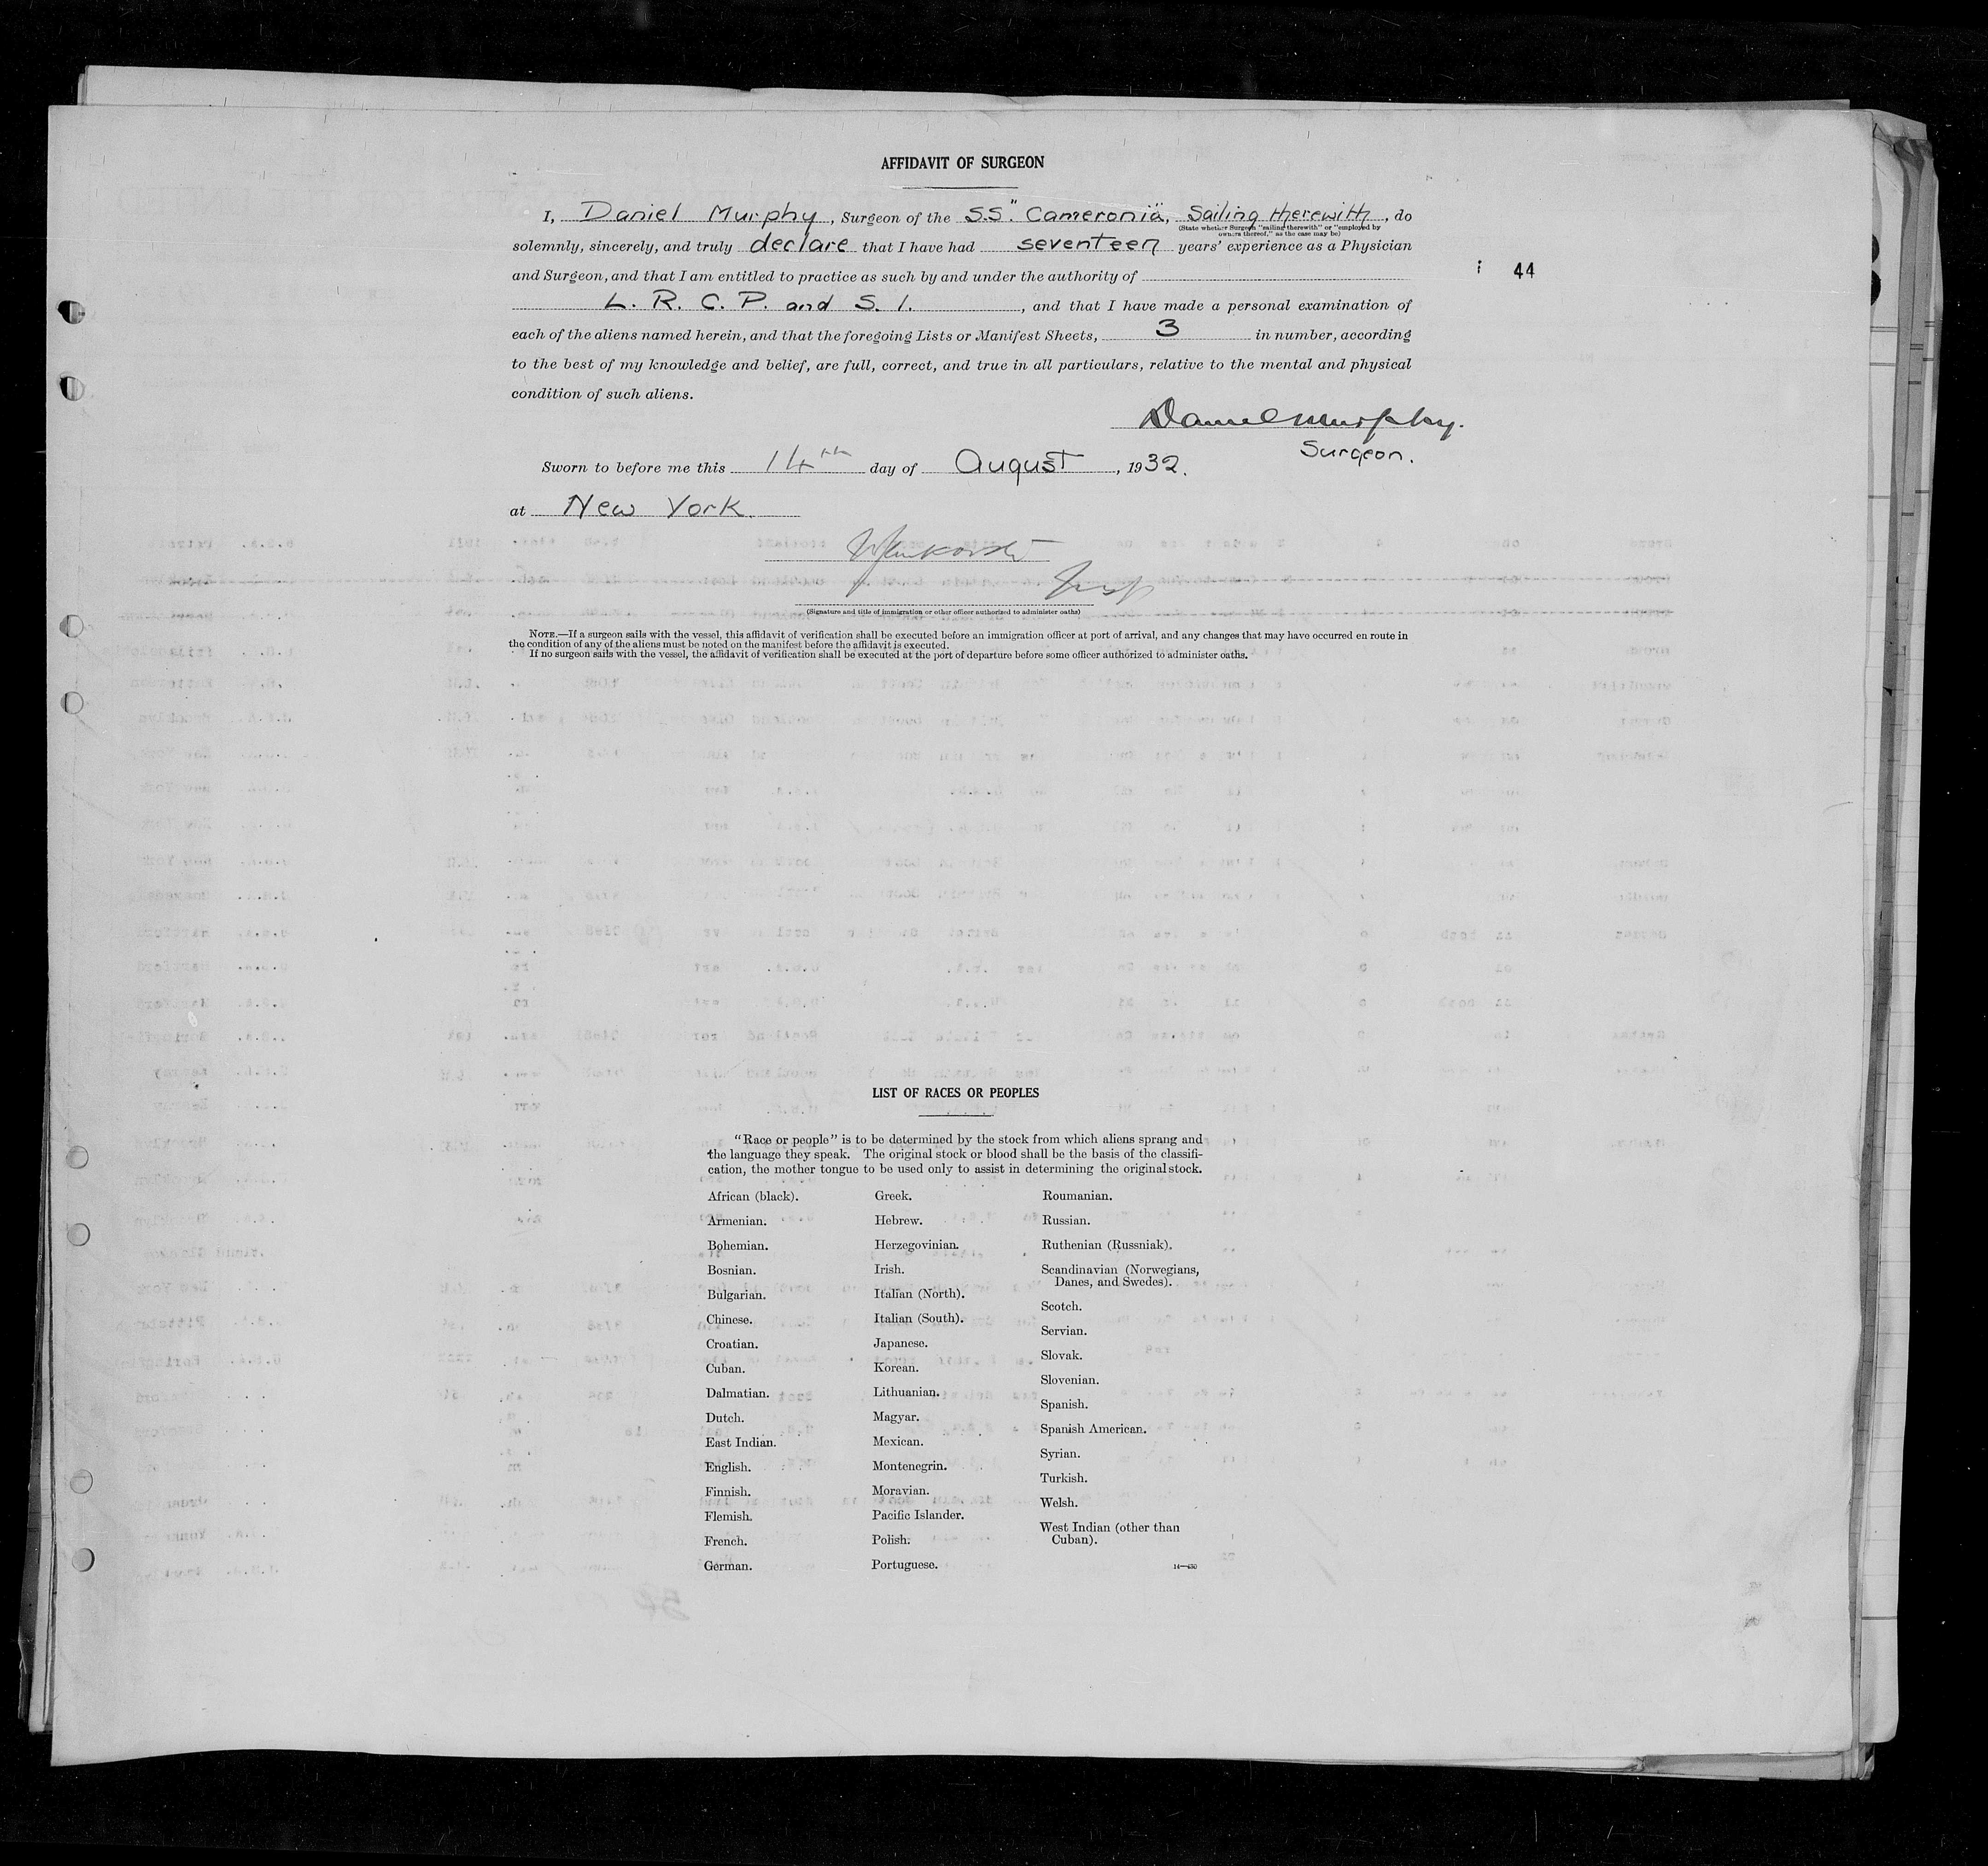 AFFIDAVIT OF SURGEON
I, Daniel Murphy, Surgeon of the S.S. "Cameronia", Sailing therewith, do
(State whether Surgeon "sailing therewith" or "employed by
owners thereof," as the case may be)
solemnly, sincerely, and truly declare that I have had seventeen years' experience as a Physician
and Surgeon, and that I am entitled to practice as such by and under the authority of
44
L. R. C. P. and S. I. , and that I have made a personal examination of
each of the aliens named herein, and that the foregoing Lists or Manifest Sheets, 3 in number, according
to the best of my knowledge and belief, are full, correct, and true in all particulars, relative to the mental and physical
condition of such aliens.
Daniel Murphy.
Surgeon.
Sworn to before me this 14th day of August, 1932.
at New York.
Insp
(Signature and title of immigration or other officer authorized to administer oaths)
NOTE.—If a surgeon sails with the vessel, this affidavit of verification shall be executed before an immigration officer at port of arrival, and any changes that may have occurred en route in
the condition of any of the aliens must be noted on the manifest before the affidavit is executed.
If no surgeon sails with the vessel, the affidavit of verification shall be executed at the port of departure before some officer authorized to administer oaths.
LIST OF RACES OR PEOPLES
"Race or people" is to be determined by the stock from which aliens sprang and
the language they speak. The original stock or blood shall be the basis of the classifi-
cation, the mother tongue to be used only to assist in determining the original stock.
African (black).
Armenian.
Bohemian.
Bosnian.
Bulgarian.
Chinese.
Croatian.
Cuban.
Dalmatian.
Dutch.
East Indian.
English.
Finnish.
Flemish.
French.
German.
Greek.
Hebrew.
Herzegovinian.
Irish.
Italian (North).
Italian (South).
Japanese.
Korean.
Lithuanian.
Magyar.
Mexican.
Montenegrin.
Moravian.
Pacific Islander.
Polish.
Portuguese.
Roumanian.
Russian.
Ruthenian (Russniak).
Scandinavian (Norwegians,
Danes, and Swedes).
Scotch.
Servian.
Slovak.
Slovenian.
Spanish.
Spanish American.
Syrian.
Turkish.
Welsh.
West Indian (other than
Cuban).
14—430